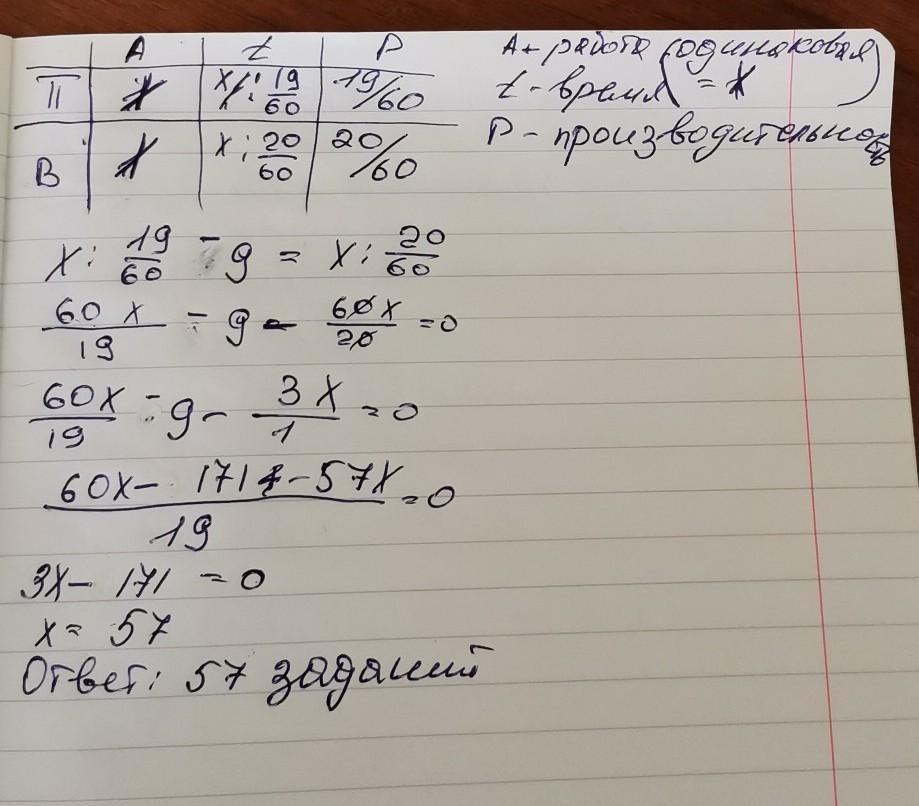 A t P A - работа (одинаковая = x)
П x x : 19/60 19/60 t - время
В x x : 20/60 20/60 P - производительность
x : 19/60 - 9 = x : 20/60
60 x/19 - 9 - 60x/20 = 0
60x/19 - 9 - 3x/1 = 0
60x - 171 - 57x/19 = 0
3x - 171 = 0
x = 57
Ответ: 57 заданий